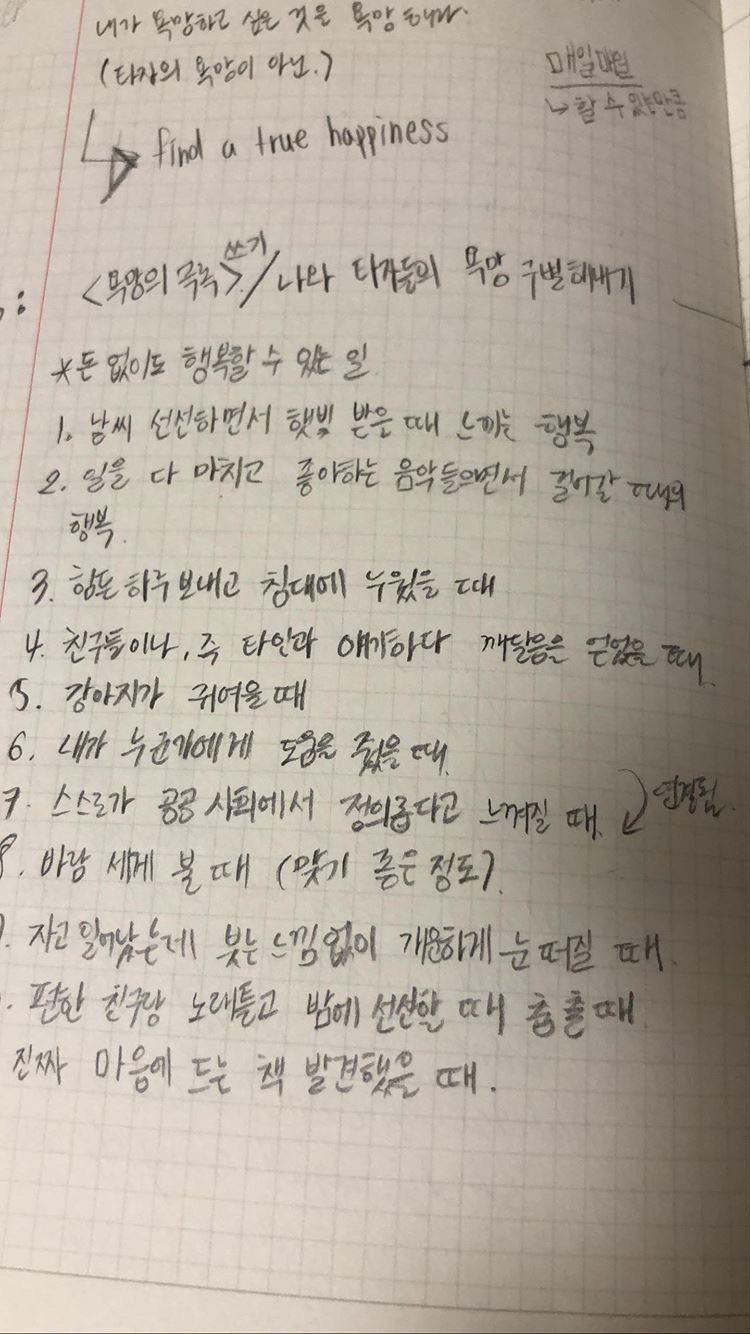 내가 욕망하고 싶은 것을 욕망해라.
(타자의 욕망이 아닌.)
매일매일
↳ 할 수 있는만큼
find a true happiness
<욕망의 목록> 쓰기 / 나와 타자들의 욕망 구별해내기
*돈 없이도 행복할 수 있는 일
1. 날씨 선선하면서 햇빛 받을 때 느끼는 행복
2. 일을 다 마치고 좋아하는 음악들으면서 걸어갈 때의
행복.
3. 힘든 하루 보내고 침대에 누웠을 때
4. 친구들이나, 즉 타인과 얘기하다 깨달음을 얻었을 때.
5. 강아지가 귀여울 때
6. 내가 누군가에게 도움을 줬을 때.
7. 스스로가 공공 사회에서 정의롭다고 느껴질 때.
연결됨.
8. 바람 세게 불 때 (맞기 좋은 정도).
자고 일어났는데 붓는 느낌 없이 개운하게 눈 떠질 때.
편한 친구랑 노래듣고 밤에 선선할 때 춤출 때.
진짜 마음에 드는 책 발견했을 때.